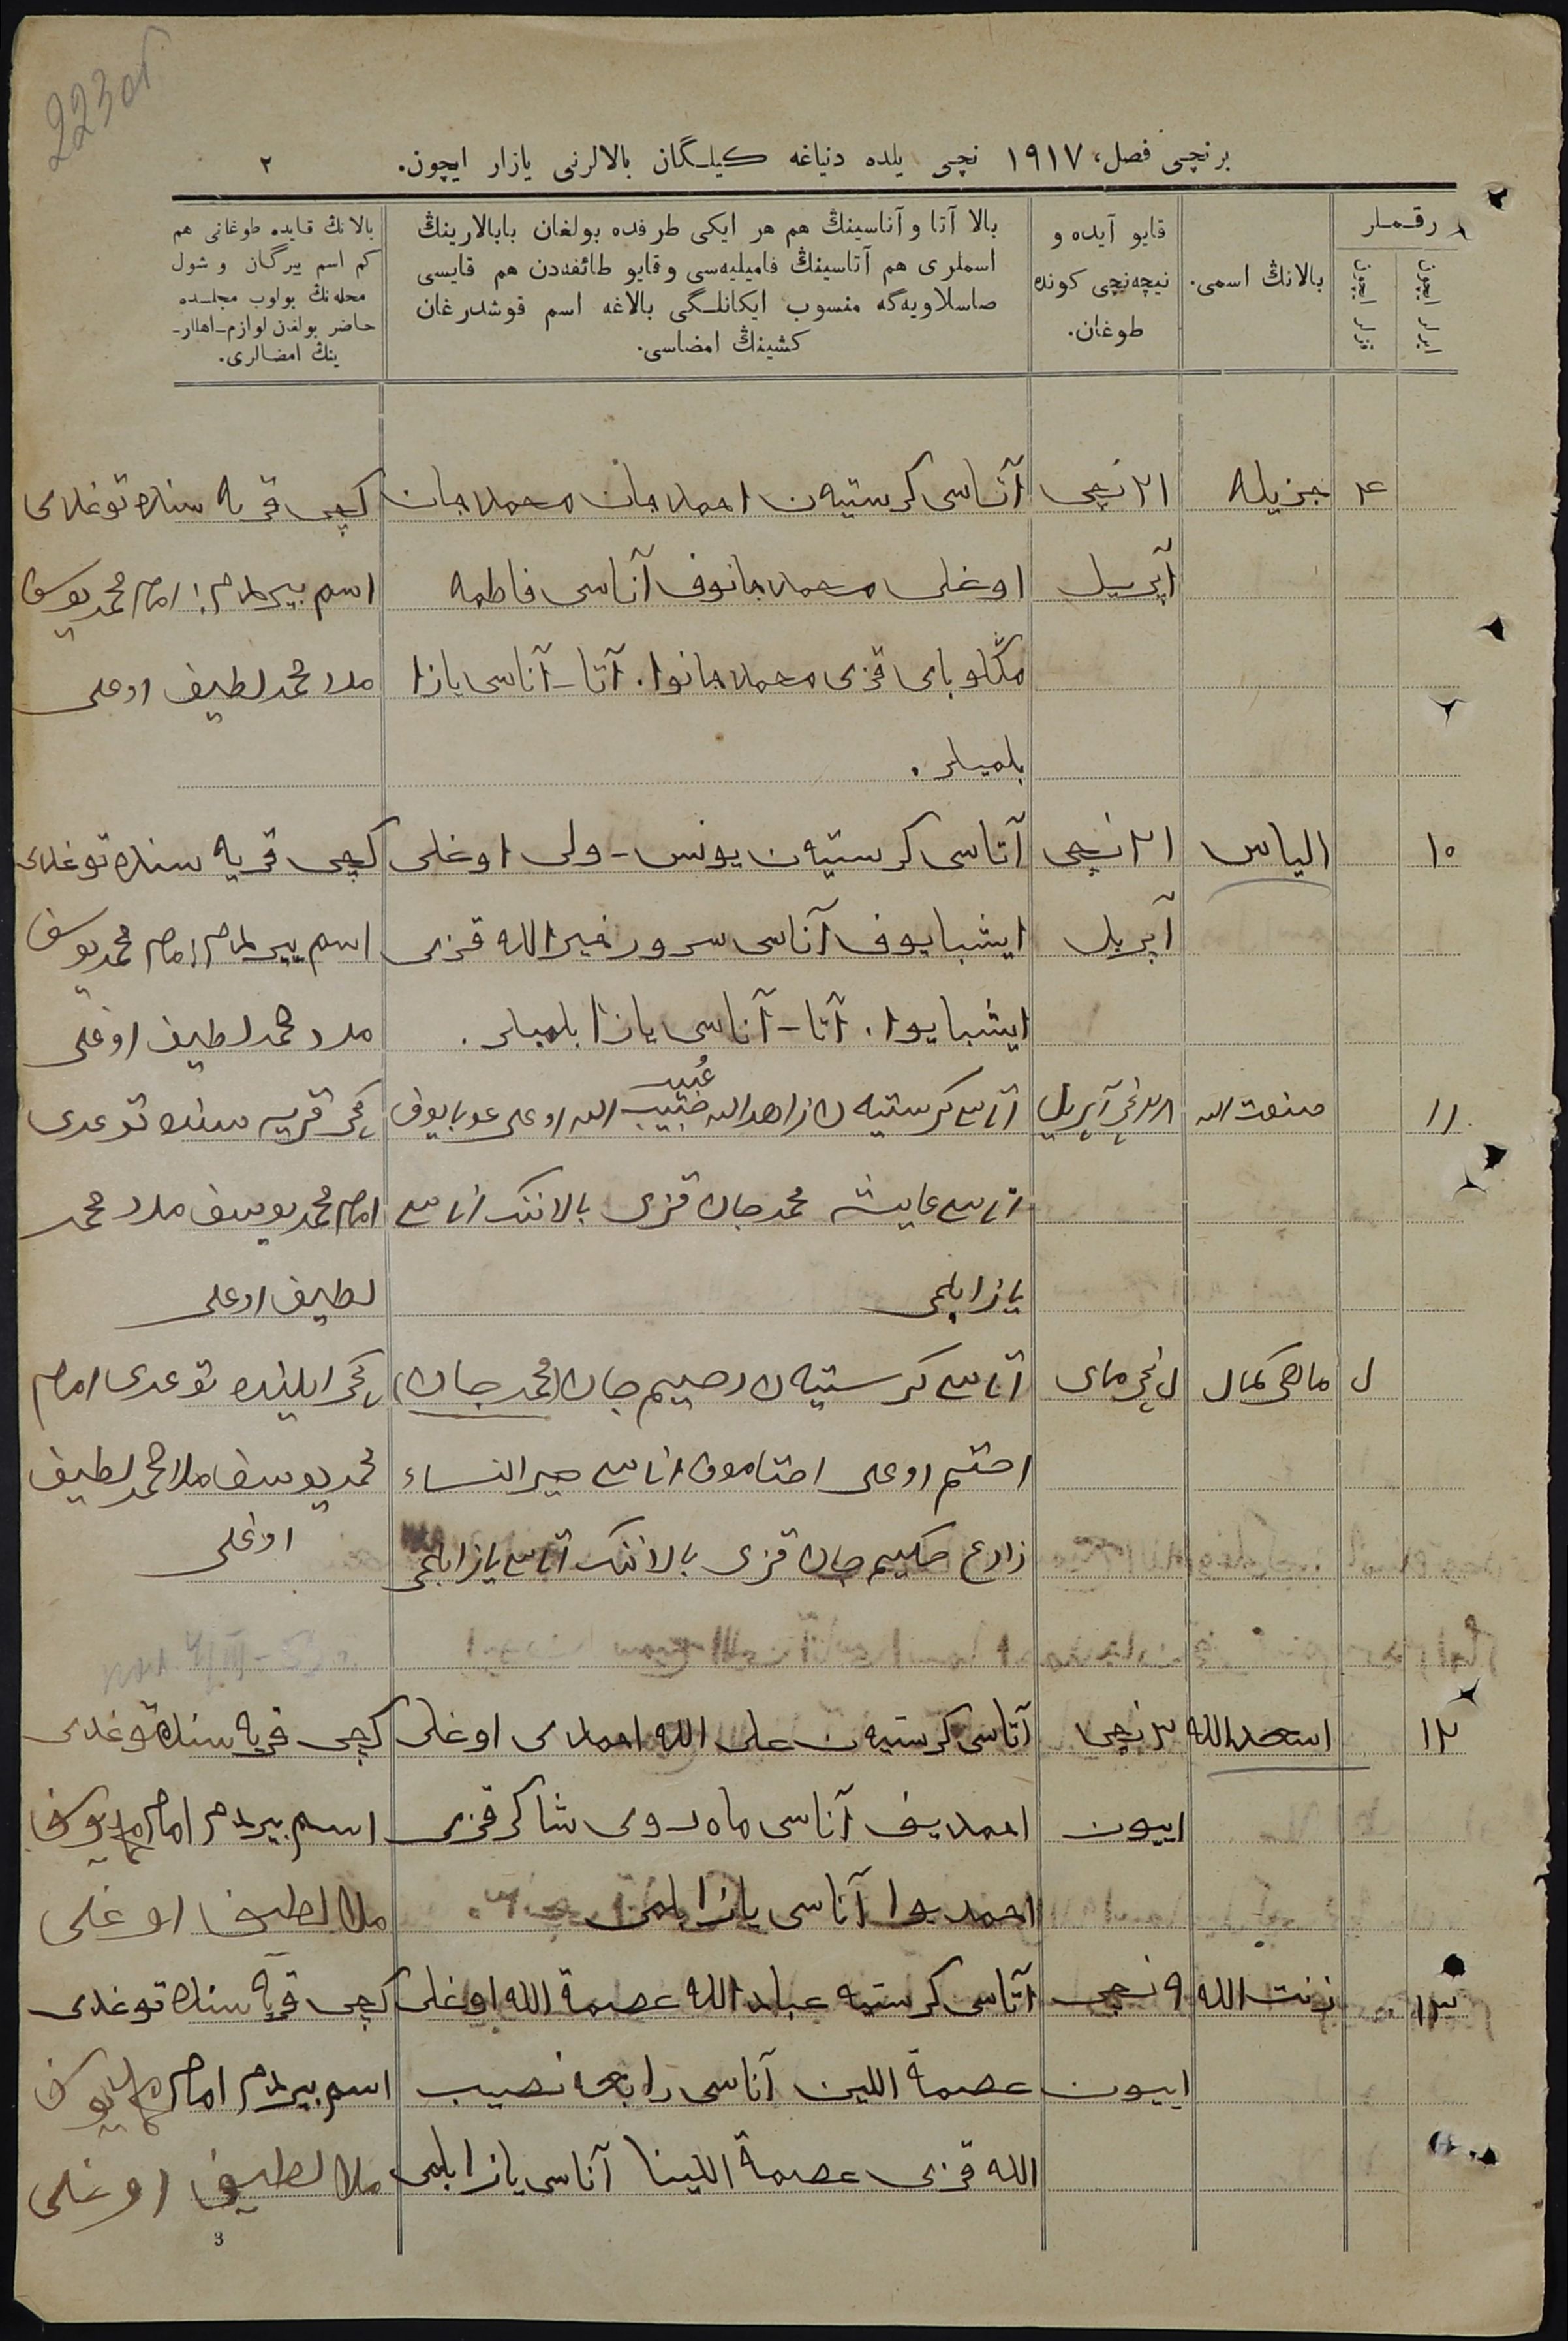 223 об
برنچی فصل، ١٩١٧ نچی يلده دنياغه كيلـگان بالالرنی يازار ايچون.
٢
رقـملر
ايرلر ايچون
قزلر ايچون
بالانڭ اسمی.
قايو آيده و
نيچه‌نچی كونده
طوغان.
بالا آتا و آناسينڭ هم هر ايكی طرفده بولغان بابالارينڭ
اسملری هم آتاسينڭ فاميليه‌سی و قايو طائفه‌دن هم قايسی
صاسلاويه‌گه منسوب ايكانلـگی بالاغه اسم قوشدرغان
كشينڭ امضاسی.
بالانڭ قايده طوغانی هم
كم اسم بيرگان و شول
محله‌نڭ بولوب مجلسده
حاضر بولغان لوازم-اهللر-
ينڭ امضالری.
٤
جزيله
٢١ نچی
آپريل
آتاسی كرستيه‌ن احمدجان محمدجان
اوغلی محمدجانوف آناسی فاطمه
مڭلوبای قزی محمدجانوا. آتا-آناسی يازا
بلميلر.
كچی قريه سنده توغلدی
اسم بيردم: امام محمديوسف
ملا محمدلطيف اوغلی
١٠
الياس
٢١ نچی
آپريل
آتاسی كرستيه‌ن يونس-ولی اوغلی
ايشبايوف آناسی سرور خيرالله قزی
ايشبايوا. آتا-آناسی يازا بلميلر.
كچی قريه سنده توغلدی
اسم بيردم امام محمديوسف
ملا محمدلطيف اوغلی
١١
صنعت الله
نچی آپريل
آتاسی كرستيه‌ن زاهدالله حبيب الله اوغلی عوبايوف
عُبيد
آناسی عايشه محمدجان قزی بالاننك اناسی
يازا بلمی
كچی قريه سنده توغدی
امام محمديوسف ملا محمد
لطيف اوغلی
كمال
نچی مای
آتاسی كرستيه‌ن رحيم جان (محمدجان)
احتم اوغلی احتاموف اناسی خيرالنساء
حكيم جان قزی بالاننك آتاسی يازا بلمی
كچی ايلنده توغدی امام
محمديوسف ملا محمدلطيف
اوغلی
١٢
اسعدالله
٢ نچی
اييون
آتاسی كرستيه‌ن علی الله احمدی اوغلی
احمديف آناسی ماه‌روی شاكر قزی
احمديوا آناسی يازا بلمی
كچی قريه سنده توغدی
اسم بيردم امام محمديوسف
ملا لطيف اوغلی
١٣
زنت الله
٩ نچی
اييون
آتاسی كرستيه عبادالله عصمة الله اوغلی
عصمة اللين آناسی رابعه نصيب
الله قزی عصمة اللينا آناسی يازا بلمی
كچی قريه سنده توغدی
اسم بيردم امام محمديوسف
ملا لطيف اوغلی
3